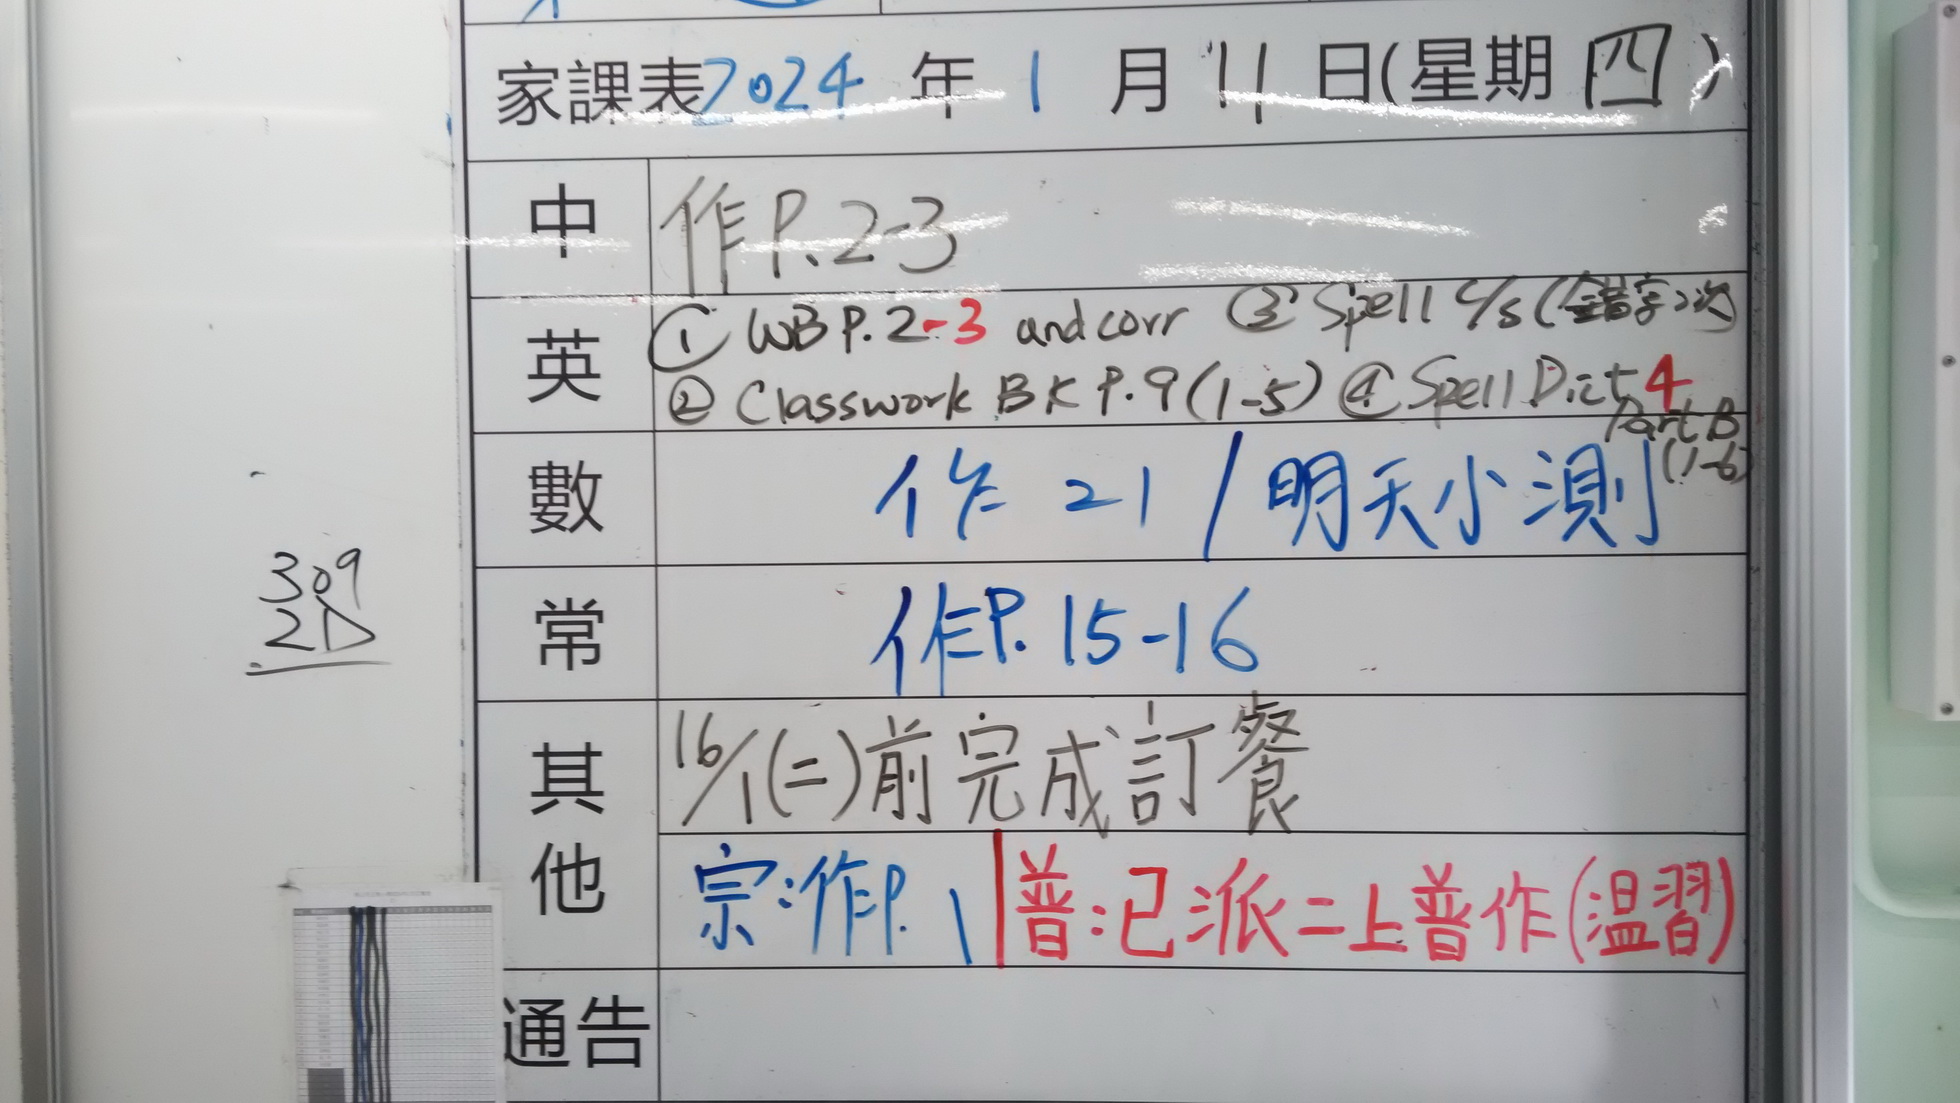 家課表2024年1月11日(星期四)
中 作P.2-3
英 ① WB P.2-3 and corr ③ Spell c/s (錯字2次)
② Classwork BK P.9 (1-5) ④ Spell Dict 4
Part B
(1-6)
數 作 21 / 明天小測
常 作P.15-16
309
2D
其他 16/1(二)前完成訂餐
宗:作P.1 普:已派二上普作(温習)
通告